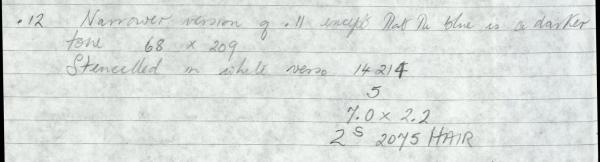 .12 Narrower version of .11 except that the blue is a darker
tone 68 x 209
Stencilled in white verso 14214
5
7.0 x 2.2
2s 2075 HAIR